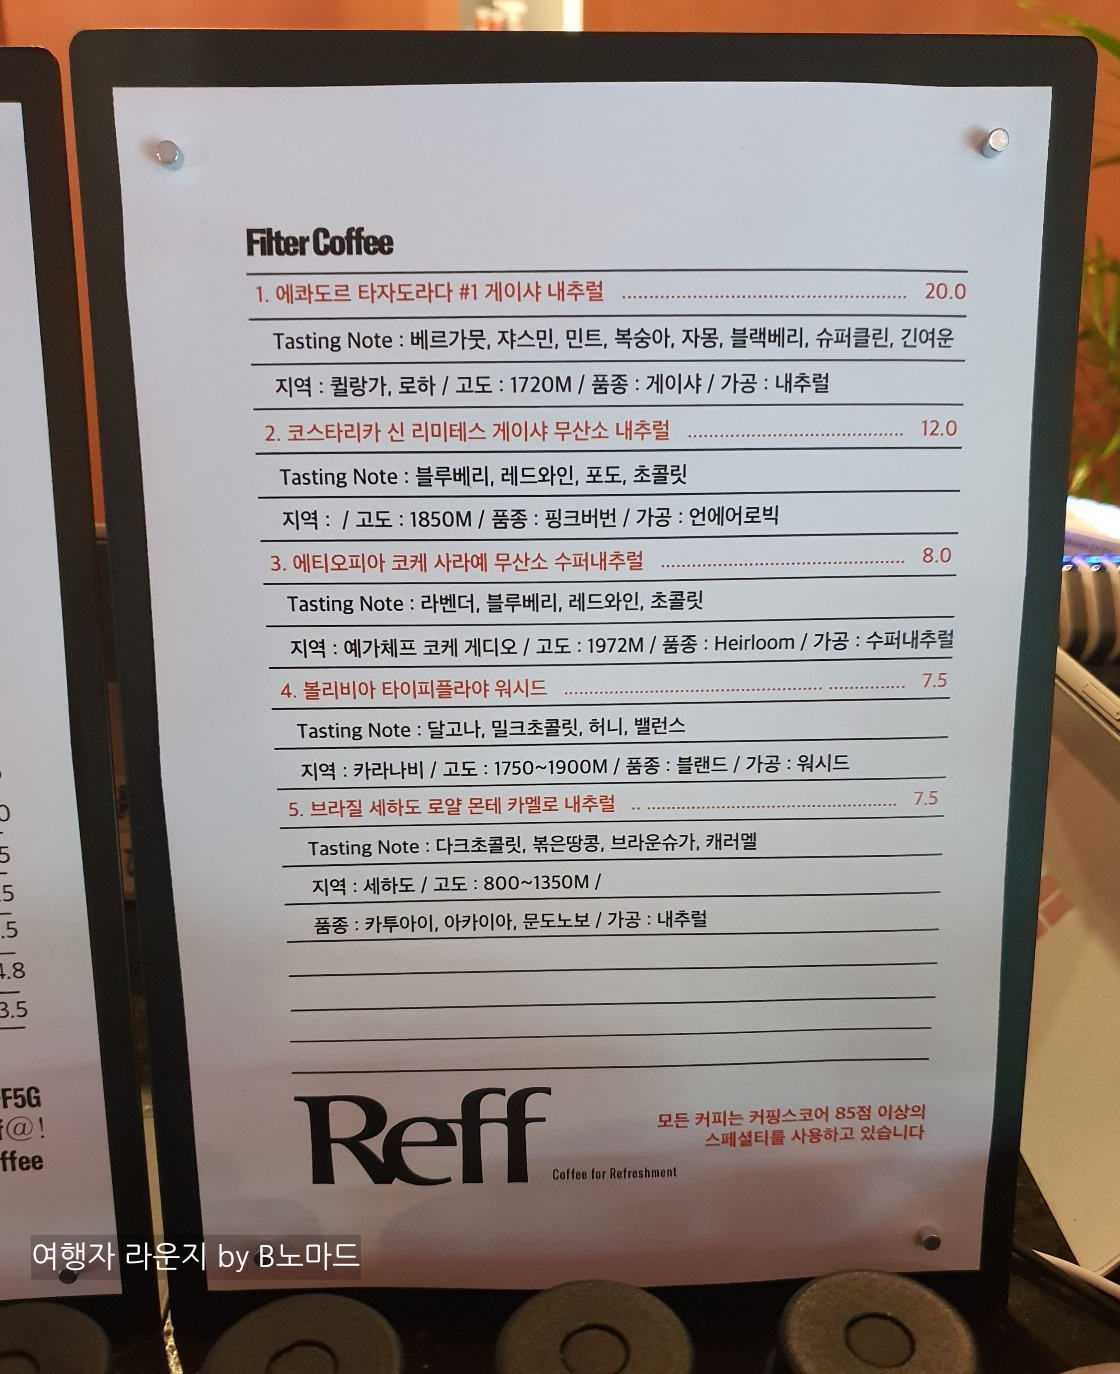 Filter Coffee
1. 에콰도르 타자도라다 #1 게이샤 내추럴 ........................ 20.0
Tasting Note : 베르가뭇, 쟈스민, 민트, 복숭아, 자몽, 블랙베리, 슈퍼클린, 긴여운
지역 : 퀼랑가, 로하 / 고도 : 1720M / 품종 : 게이샤 / 가공 : 내추럴
2. 코스타리카 신 리미테스 게이샤 무산소 내추럴 ........................ 12.0
Tasting Note : 블루베리, 레드와인, 포도, 초콜릿
지역 : / 고도 : 1850M / 품종 : 핑크버번 / 가공 : 언에어로빅
3. 에티오피아 코케 사라예 무산소 수퍼내추럴 ........................ 8.0
Tasting Note : 라벤더, 블루베리, 레드와인, 초콜릿
지역 : 예가체프 코케 게디오 / 고도 : 1972M / 품종 : Heirloom / 가공 : 수퍼내추럴
4. 볼리비아 타이피플라야 워시드 ........................ 7.5
Tasting Note : 달고나, 밀크초콜릿, 허니, 밸런스
지역 : 카라나비 / 고도 : 1750~1900M / 품종 : 블랜드 / 가공 : 워시드
5. 브라질 세하도 로얄 몬테 카멜로 내추럴 .. ........................ 7.5
Tasting Note : 다크초콜릿, 볶은땅콩, 브라운슈가, 캐러멜
지역 : 세하도 / 고도 : 800~1350M /
품종 : 카투아이, 아카이아, 문도노보 / 가공 : 내추럴
Reff
Coffee for Refreshment
모든 커피는 커핑스코어 85점 이상의
스페셜티를 사용하고 있습니다
.5
4.8
3.5
F5G
@!
ffee
여행자 라운지 by B노마드